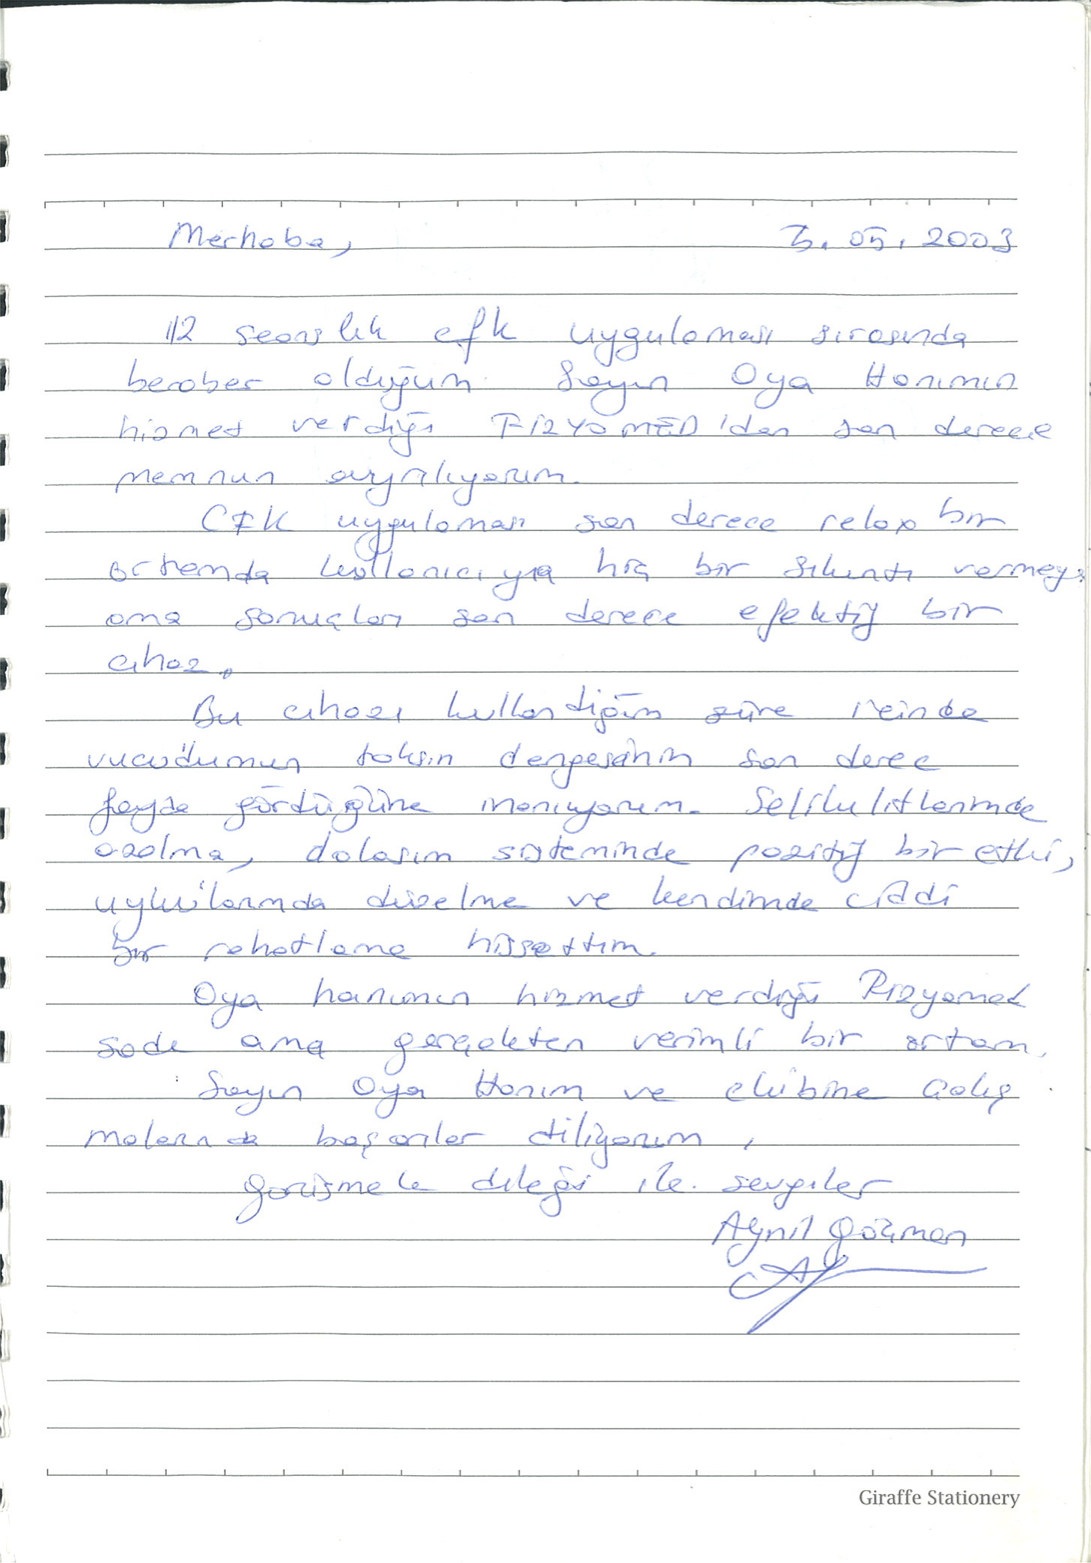 Merhaba, 3.05.2003
12 seanslık efk uygulaması sırasında
beraber olduğum Sayın Oya Hanımın
hizmet verdiği FİZYOMED'den son derece
memnun ayrılıyorum.
CFK uygulaması son derece relax bir
ortamda kullanıcıya hiç bir sıkıntı vermeyi
ama sonuçları son derece efektif bir
cihaz.
Bu cihazı kullandığım süre içinde
vucudumun toksin dengesinin son derec
fayda gördüğüne inanıyorum. Selilulitlerimde
azalma, dolaşım sisteminde pozitif bir etki,
uykularımda düzelme ve kendimde ciddi
bir rahatlama hissettim.
Oya hanımın hizmet verdiği Fizyomed
sade ama gerçekten verimli bir ortam.
Sayın Oya Hanım ve ekibine çalış
malarında başarılar diliyorum,
görüşmek dileği ile. sevgiler
Aynil Göçmen
Giraffe Stationery